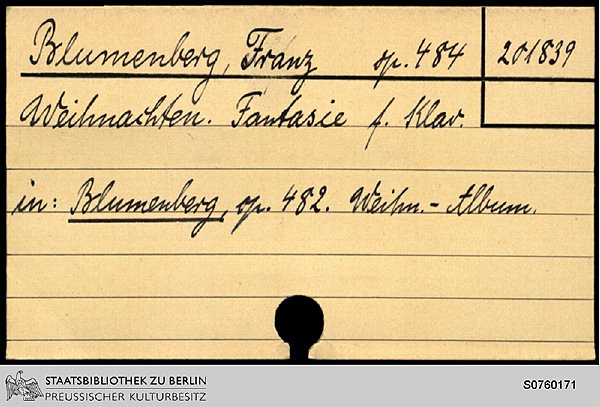 Blumenberg, Franz op. 484 201839
Weihnachten. Fantasie f. Klav.
in: Blumenberg, op. 482. Weihn.-Album.
STAATSBIBLIOTHEK ZU BERLIN
PREUSSISCHER KULTURBESITZ
S0760171